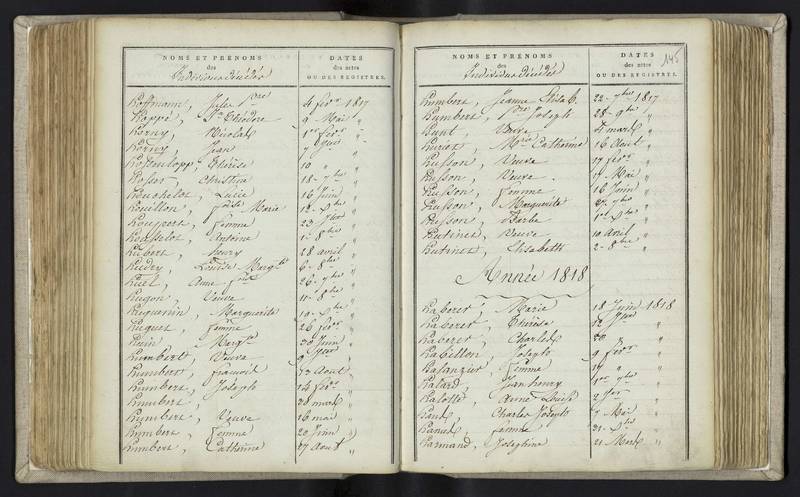 NOMS ET PRÉNOMS
des
Individus décédés
DATES
des actes
OU DES REGISTRES.
hoffmann, Jules 4 fevr 1817
hoppé, Théodore 9 Mai "
horny, Nicolas 1er fevr "
horny, Jean 7 "
Thérèse 10 " "
hosser, Christine 18 7bre "
houchelot, Lucie 16 Juin "
houillon, Marie 12 "
houpert, femme 23 "
housselot, Antoine 1 8bre "
hubert, henry 28 avril "
Louise Margte 6 8bre "
huel, Anne 26 7bre "
hugon, Veuve 11 8bre "
huguenin, Marguerite "
huguet, femme 26 fevr "
huin, Margte 30 Juin "
humbert, Veuve 9 "
humbert, françois 13 Aout "
humbert, Joseph 14 fevr "
humbert, 30 mars "
humbert, Veuve 16 mai "
humbert, femme 20 Juin "
humbert, Catherine 27 Aout "
145
NOMS ET PRÉNOMS
des
Individus décédés
DATES
des actes
OU DES REGISTRES.
humbert, Jeanne 22 7bre 1817
humbert, Joseph 28 9bre "
hunt, 4 mars "
huriet, Mie Catherine 16 Aout "
husson, Veuve 17 fevr "
husson, Veuve 17 Mai "
husson, femme 16 Juin "
husson, Marguerite 27 7bre "
husson, Barbe "
hutinet, Veuve 10 avril "
hutinet, Elisabeth 2 8bre "
Année 1818
haberer, Marie 18 Juin 1818
haberer, Thérèse 12 "
haberer, Charles 20 "
habillon, Joseph 9 fevr "
femme 19 " "
halard, Jean henry 1er 7bre "
halotte, Anne Louise 2 "
hand, Charles Joseph 7 Mai "
hanus, femme 21 "
harmand, Joséphine 21 Mars "